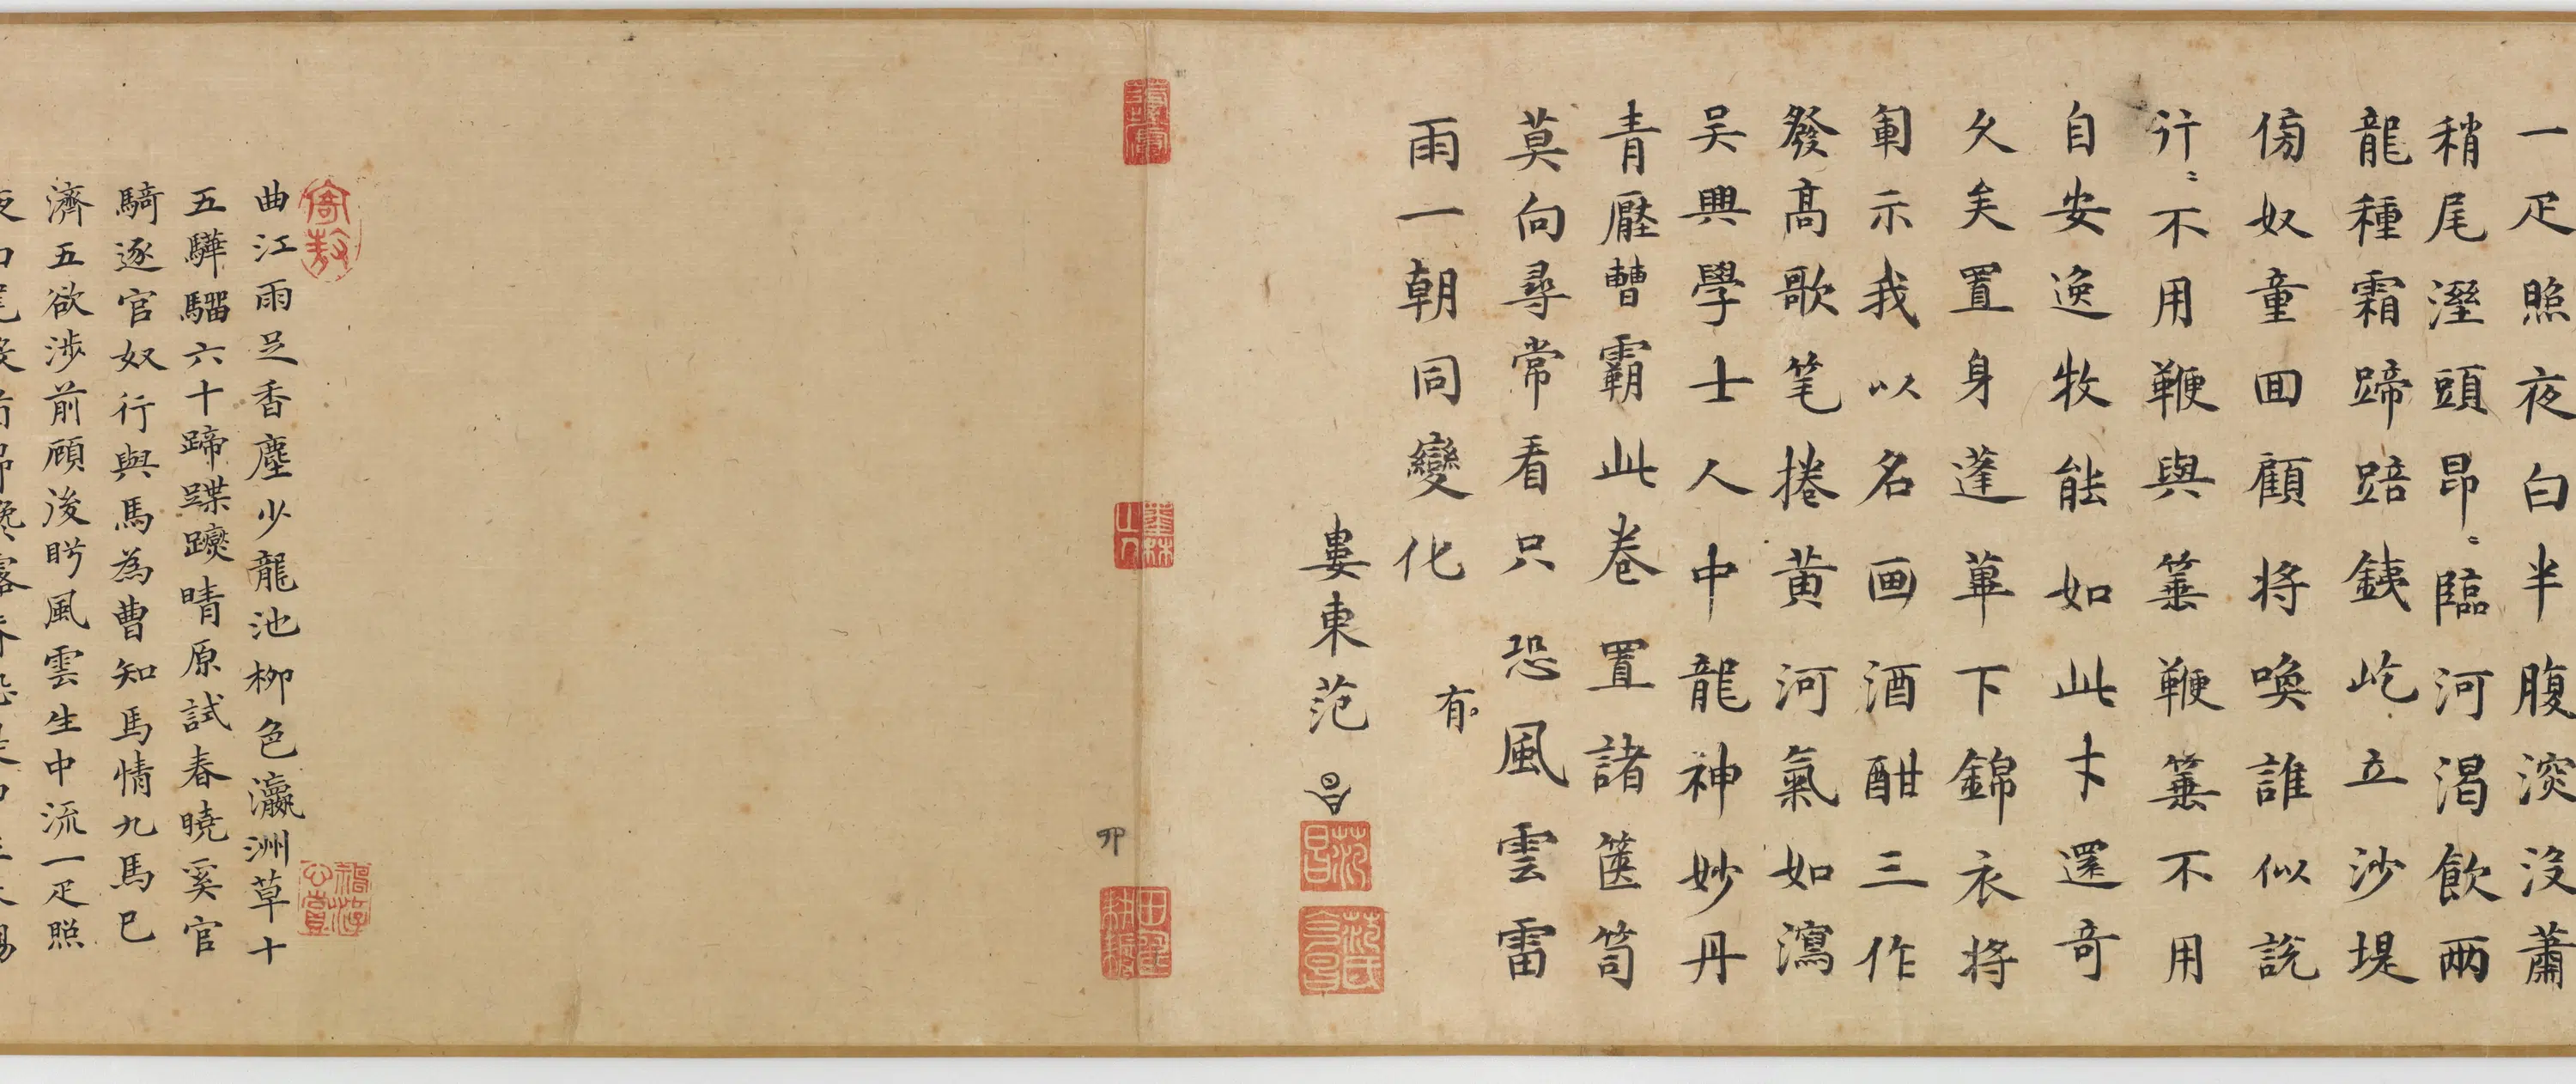 一疋照夜白半腹深沒蕭
稍尾溼頭昂〻臨河渴飲兩
龍種霜蹄踣鐵屹立沙堤
傍奴童囬顧將喚誰似說
行〻不用鞭與箠鞭箠不用
自安逸牧能如此才還奇
久矣置身蓬蓽下錦衣將
軍示我以名画酒酣三作
發高歌筆捲黃河氣如瀉
吳興學士人中龍神妙丹
青壓曹霸此卷置諸篋笥
莫向尋常看只恐風雲雷
雨一朝同變化
有
婁東范昌
范昌
范氏
卯
曲江雨足香塵少龍池柳色瀛洲草十
五驊騮六十蹄蹀躞晴原試春曉奚官
騎逐官奴行與馬為曹知馬情九馬已
濟五欲涉前顧後盻風雲生中流一疋照